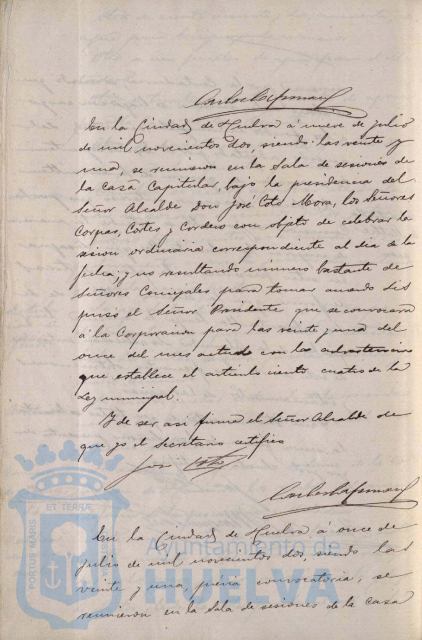 En la Ciudad de Huelva á nueve de julio
de mil novecientos dos, siendo las veinte y
una, se reunieron en la Sala de sesiones de
la Casa Capitular, bajo la presidencia del
Señor Alcalde Don José Coto Mora, los Señores
Corpas, Cortes y Cordero con objeto de celebrar la
sesion ordinaria correspondiente al dia de la
fecha; y no resultando número bastante de
Señores Concejales para tomar acuerdo dis
puso el Señor Presidente que se convocara
á la Corporacion para las veinte y una del
once del mes actual con las advertencias
que establece el articulo ciento cuatro de la
Ley municipal.
Y de ser asi firma el Señor Alcalde de
que yo el Secretario certifico
José Coto
En la Ciudad de Huelva á once de
julio de mil novecientos dos, siendo las
veinte y una, previa convocatoria, se
reunieron en la Sala de sesiones de la Casa
PORTUS MARIS
ET TERRÆ
Ayuntamiento de
HUELVA